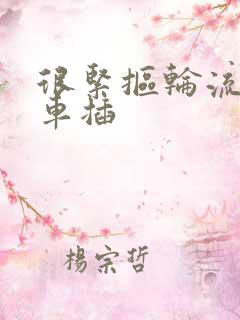 很緊摳輪流
車插
楊宗哲